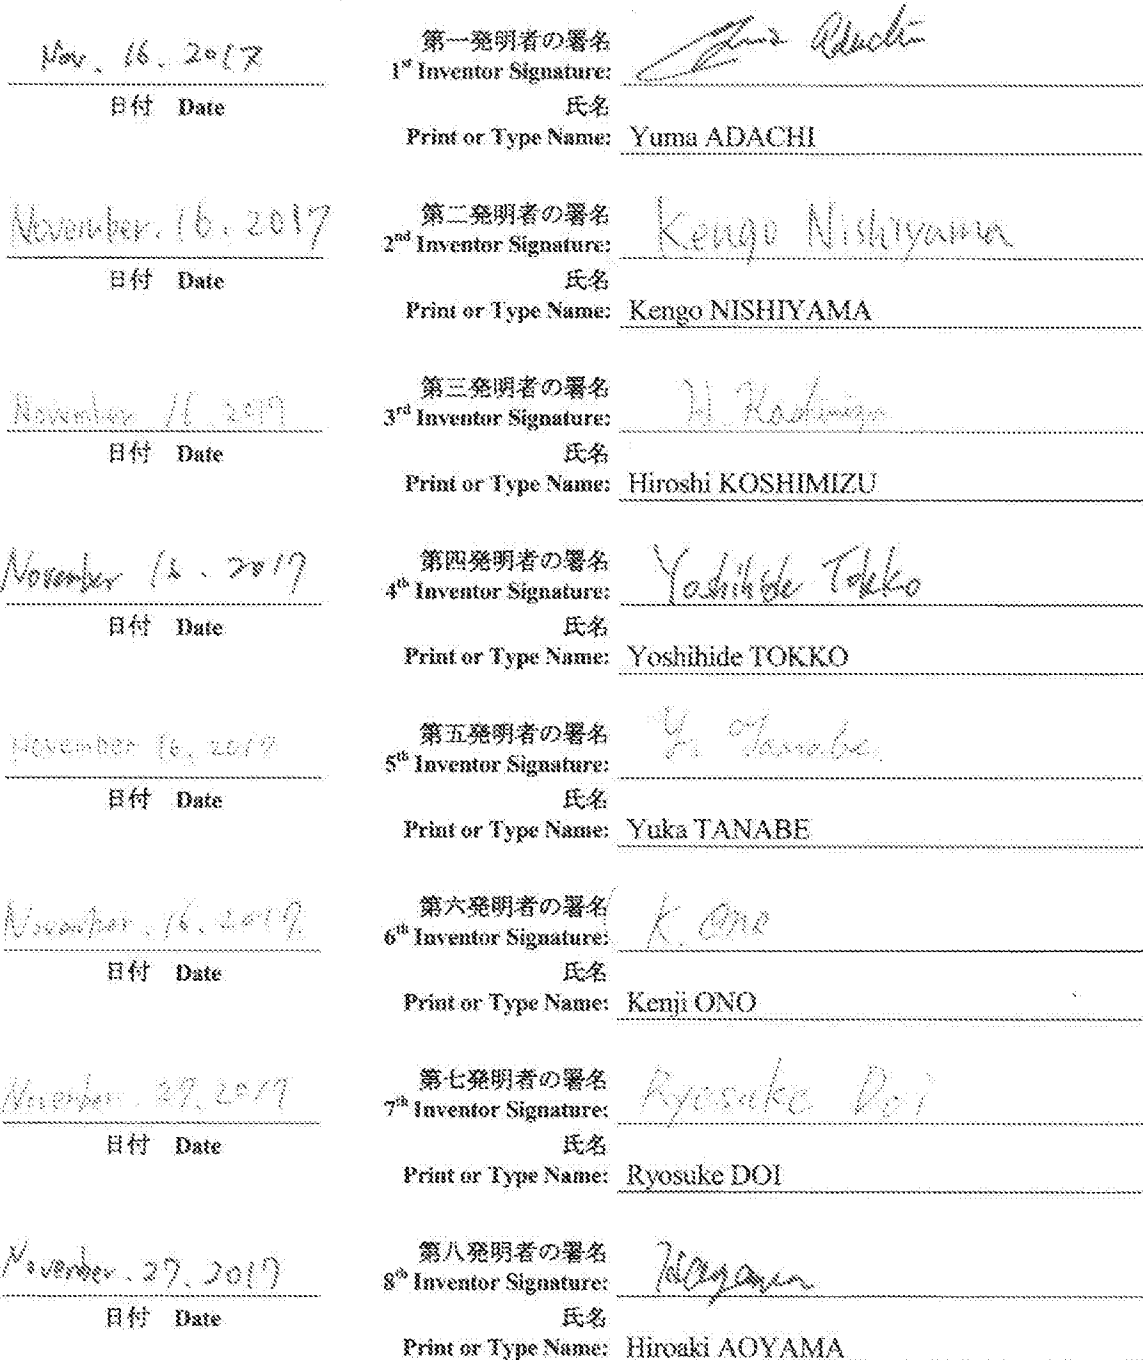 Nov. 16. 2017
第一発明者の署名
1st Inventor Signature: Adachi
日付 Date
氏名
Print or Type Name: Yuma ADACHI
November. 16. 2017
第二発明者の署名
2nd Inventor Signature: Kengo Nishiyama
日付 Date
氏名
Print or Type Name: Kengo NISHIYAMA
November 16. 2017
第三発明者の署名
3rd Inventor Signature: H. Koshimizu
日付 Date
氏名
Print or Type Name: Hiroshi KOSHIMIZU
November 16. 2017
第四発明者の署名
4th Inventor Signature: Yoshihide Tokko
日付 Date
氏名
Print or Type Name: Yoshihide TOKKO
November 16, 2017
第五発明者の署名
5th Inventor Signature: Y. Tanabe
日付 Date
氏名
Print or Type Name: Yuka TANABE
November. 16. 2017
第六発明者の署名
6th Inventor Signature: K. Ono
日付 Date
氏名
Print or Type Name: Kenji ONO
November. 27. 2017
第七発明者の署名
7th Inventor Signature: Ryosuke Doi
日付 Date
氏名
Print or Type Name: Ryosuke DOI
November. 27. 2017
第八発明者の署名
8th Inventor Signature:
日付 Date
氏名
Print or Type Name: Hiroaki AOYAMA